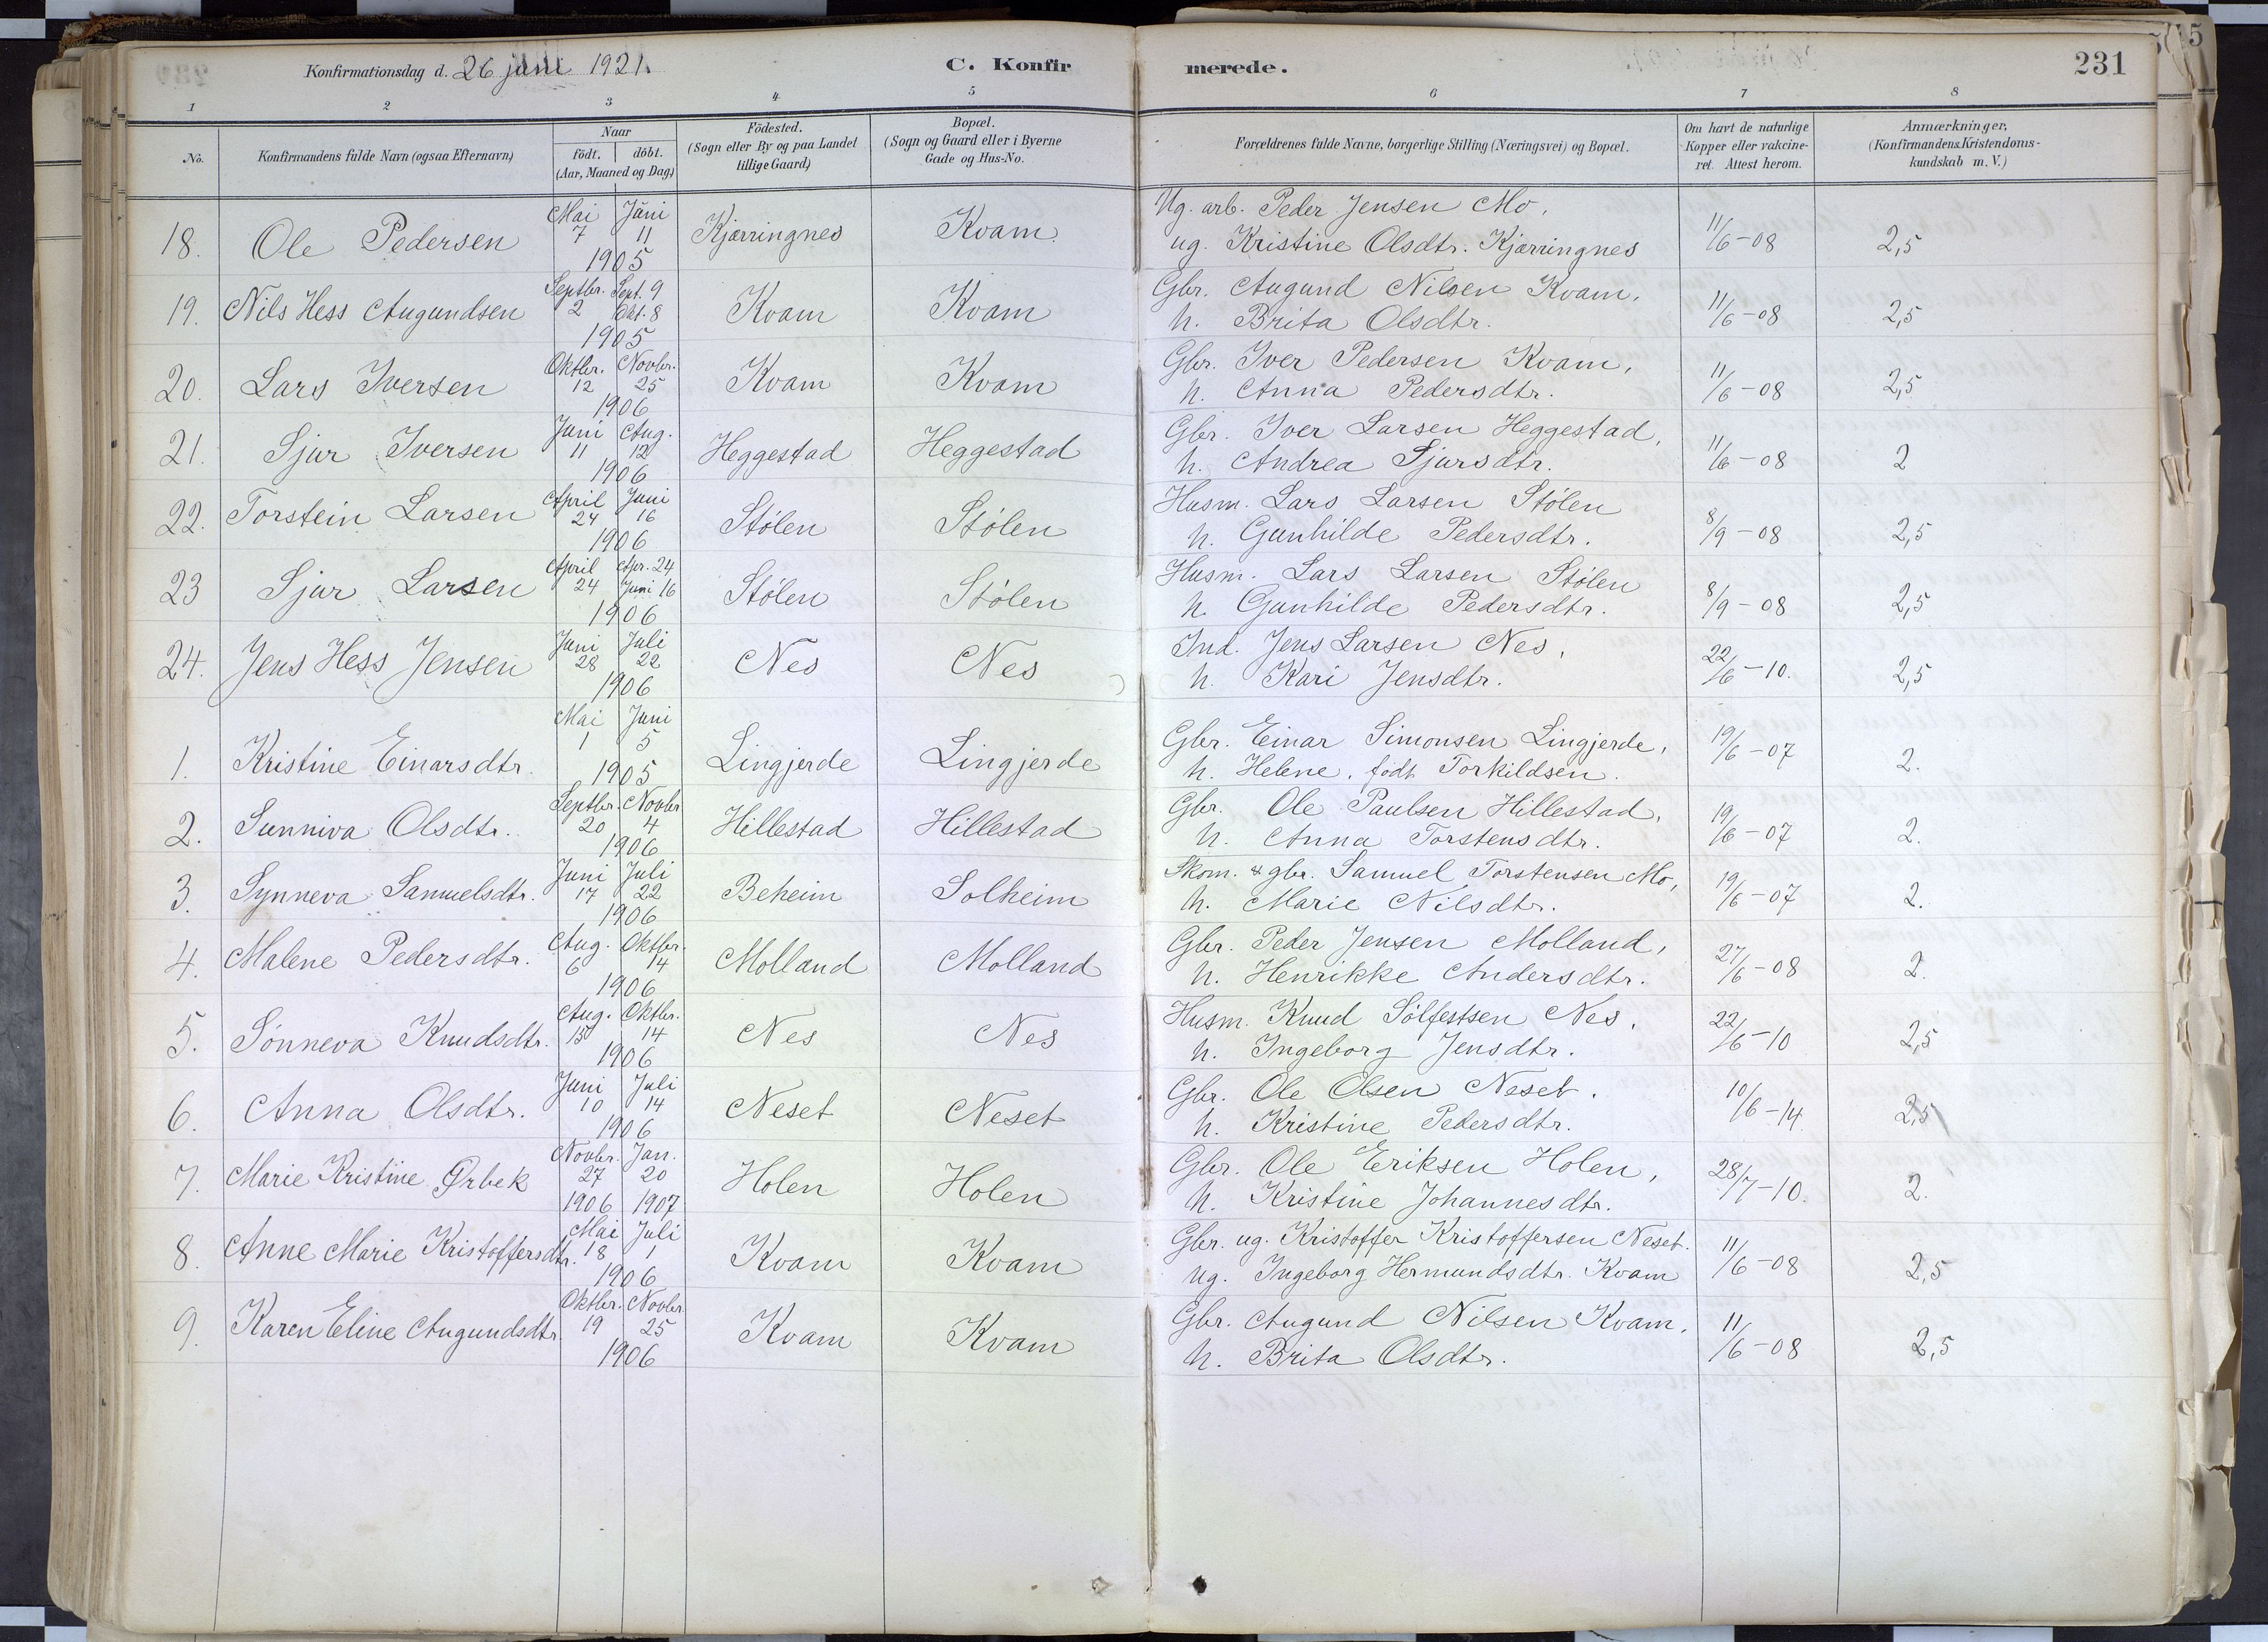 Konfirmationsdag d. 26 juni 1921.
C. Konfirmerede.
231
1 2 3 4 5 6 7 8
No.
Konfirmandens fulde Navn (ogsaa Efternavn)
Naar
födt. | döbt.
(Aar, Maaned og Dag)
Födested.
(Sogn eller By og paa Landet
tillige Gaard)
Bopæl.
(Sogn og Gaard eller i Byerne
Gade og Hus-No.
Forældrenes fulde Navne, borgerlige Stilling (Næringsvei) og Bopæl.
Om havt de naturlige
Kopper eller vakcine-
ret. Attest herom.
Anmærkninger,
(Konfirmandens Kristendoms-
kundskab m. V.)
18. Ole Pedersen Mai 7 Juni 11 1905 Kjærringnes Kvam Ug. arb. Peder Jensen Mo,
ug. Kristine Olsdtr. Kjærringnes 11/6-08 2,5
19. Nils Hess Augundsen Septbr. 2 Sept. 9 Okt. 8 1905 Kvam Kvam Gbr. Augund Nilsen Kvam,
h. Brita Olsdtr. 11/6-08 2,5
20. Lars Iversen Oktbr. 12 Novbr. 25 1906 Kvam Kvam Gbr. Iver Pedersen Kvam,
h. Anna Pedersdtr. 11/6-08 2,5
21. Sjur Iversen Juni 11 Aug. 12 1906 Heggestad Heggestad Gbr. Iver Larsen Heggestad,
h. Andrea Sjursdtr. 11/6-08 2
22. Torstein Larsen April 24 Juni 16 1906 Stølen Stølen Husm. Lars Larsen Stølen
h. Gunhilde Pedersdtr. 8/9-08 2,5
23 Sjur Larsen April 24 Apr. 24 Juni 16 1906 Stølen Stølen Husm. Lars Larsen Stølen
h. Gunhilde Pedersdtr. 8/9-08 2,5
24. Jens Hess Jensen Juni 28 Juli 22 1906 Nes Nes Ind. Jens Larsen Nes,
h. Kari Jensdtr. 22/6-10. 2,5
1. Kristine Einarsdtr. Mai 1 Juni 5 1905 Lingjerde Lingjerde Gbr. Einar Simonsen Lingjerde,
h. Helene, født Torkildsen. 19/6-07 2.
2. Sunniva Olsdtr. Septbr. 20 Novbr 4 1906 Hillestad Hillestad Gbr. Ole Paulsen Hillestad,
h. Anna Torstensdtr. 19/6-07 2.
3. Synneva Samuelsdtr. Juni 17 Juli 22 1906 Beheim Solheim Skom. & gbr. Samuel Torstensen Mo,
h. Marie Nilsdtr. 19/6-07 2.
4. Malene Pedersdtr. Aug. 6 Oktbr. 14 1906 Molland Molland Gbr. Peder Jensen Molland,
h. Henrikke Andersdtr. 27/6-08 2.
5. Sønneva Knudsdtr. Aug. Oktbr. 14 1906 Nes Nes Husm. Knud Sølfestsen Nes,
h. Ingeborg Jensdtr. 22/6-10 2,5
6. Anna Olsdtr. Juni 10 Juli 14 1906 Neset Neset Gbr. Ole Olsen Neset.
h. Kristine Pedersdtr. 10/6-14. 2,5
7. Marie Kristine Ørbek Novbr. 27 1906 Jan. 20 1907 Holen Holen Gbr. Ole Eriksen Holen,
h. Kristine Johannesdtr. 28/7-10. 2.
8. Anne Marie Kristoffersdtr. Mai 18 Juli 1 1906 Kvam Kvam Gbr. ug. Kristoffer Kristoffersen Neset.
ug. Ingeborg Hermundsdtr. Kvam 11/6-08 2,5
9. Karen Eline Augundsdtr. Oktbr. 19 Novbr. 25 1906 Kvam Kvam Gbr. Augund Nilsen Kvam,
h. Brita Olsdtr. 11/6-08 2,5